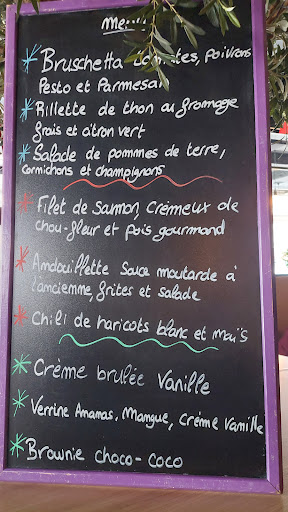 Bruschetta tomates, poivrons
Pesto et Parmesan
Rillette de thon au fromage
frais et citron vert
Salade de pommes de terre,
cornichons et champignons
Filet de Saumon, Crémeux de
chou-fleur et pois gourmand
Andouillette sauce moutarde à
l'ancienne, frites et salade
Chili de haricots blanc et maïs
Crème brulée Vanille
Verrine Ananas, Mangue, Crème Vanille
Brownie choco-coco